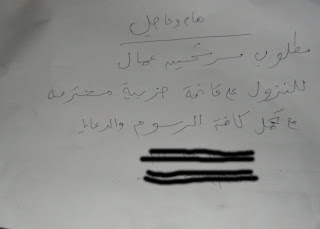 هام وعاجل
مطلوب مرشحين عمال
للنزول مع قائمة حزبية محترمه
مع تحمل كافة الرسوم والدعايا